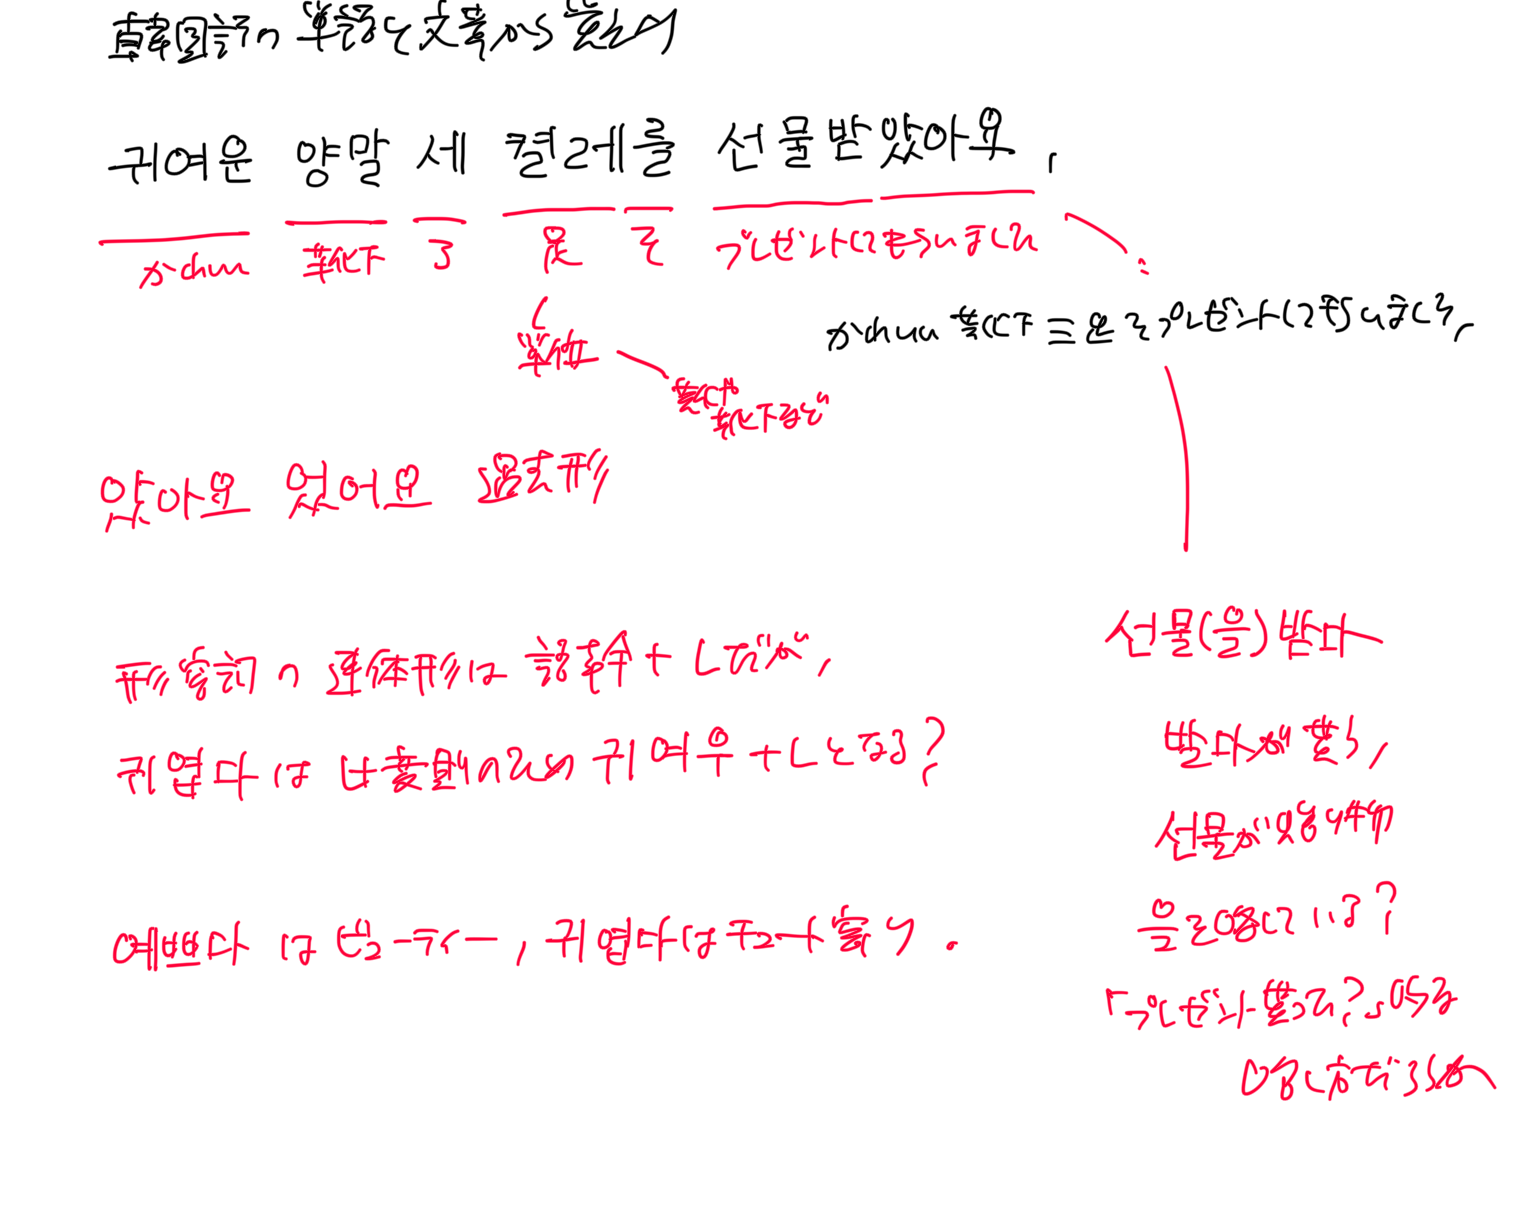 韓国語の単語を文章から覚える
귀여운 양말 세 켤레를 선물받았아요.
かわいい 靴下 3 足 を プレゼントしてもらいました
かわいい靴下三足をプレゼントしてもらいました。
単位
靴や
靴下など
았아요 었어요 過去形
形容詞の連体形は語幹+ㄴだが、
귀엽다はㅂ変則のため귀여우+ㄴとなる?
예쁘다はビューティー,귀엽다はキュート寄り.
선물(을)받다
받다が貰う,
선물が贈り物
을を略している?
「プレゼント貰った?」みたいな
略し方だろうか